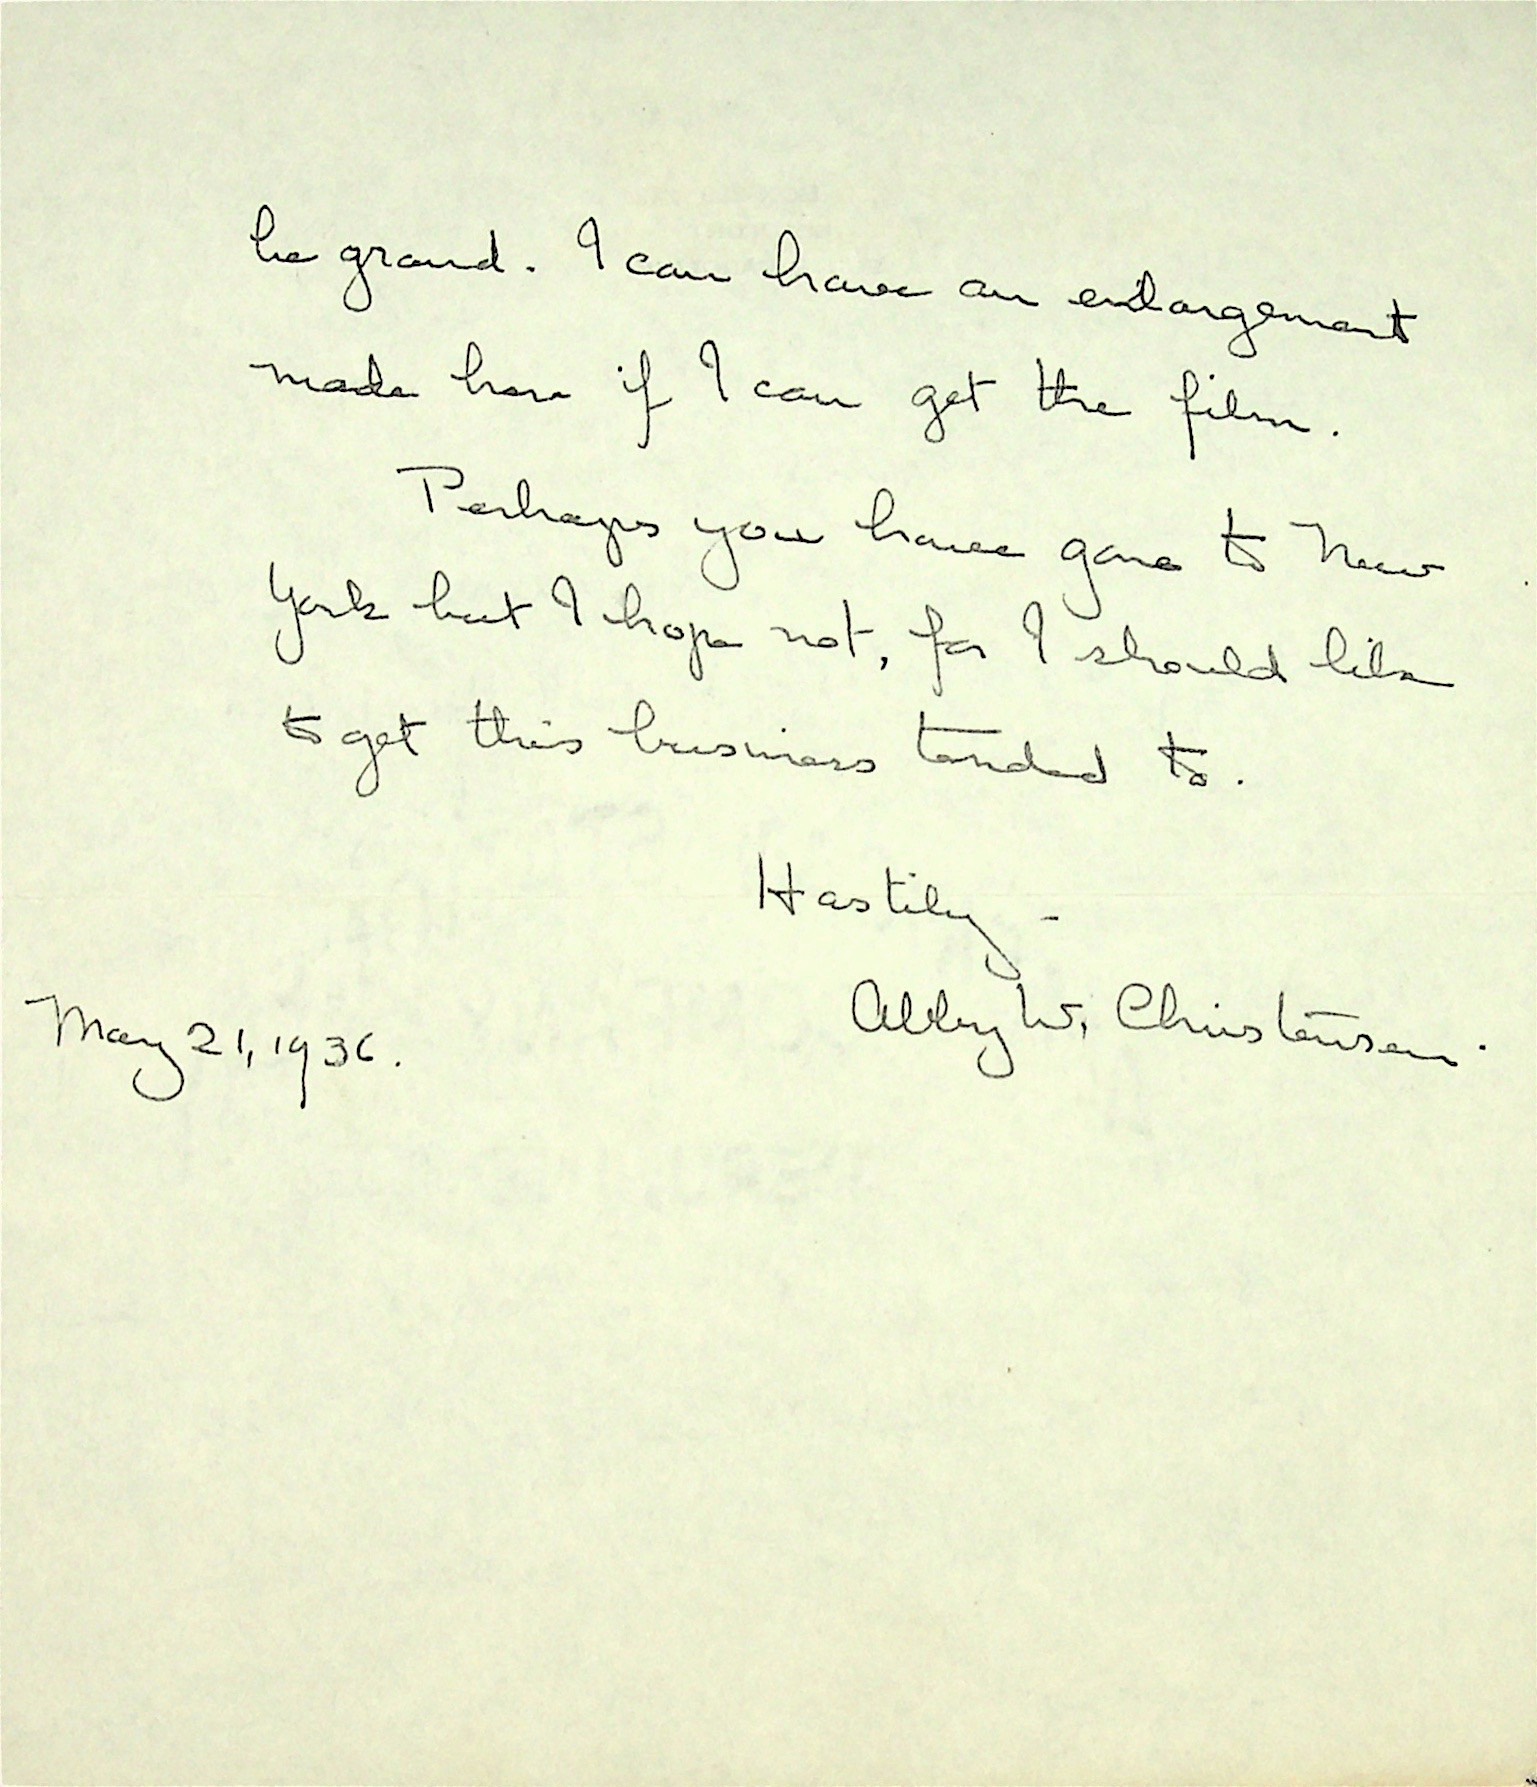 be grand. I can have an enlargement
made here if I can get the film.
Perhaps you have gone to New
York but I hope not, for I should like
to get this business tended to.
Hastily -
Abby W. Christensen.
May 21, 1936.